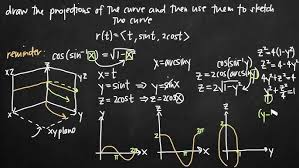 draw the projections of the curve and then use them to sketch
the curve
r(t)=<t, sint, 2cost>
reminder: cos(sin⁻¹x)=√1-x²
x=t
y=sint
z=2cost → z=2cosx
x=arcsiny
z=2cos(arcsiny)
z=2√1-y²
z²=4(1-y²)
z²=4-4y²
4y²+z²=4
xz
yz
xy plane
y
x
z
x
z
y